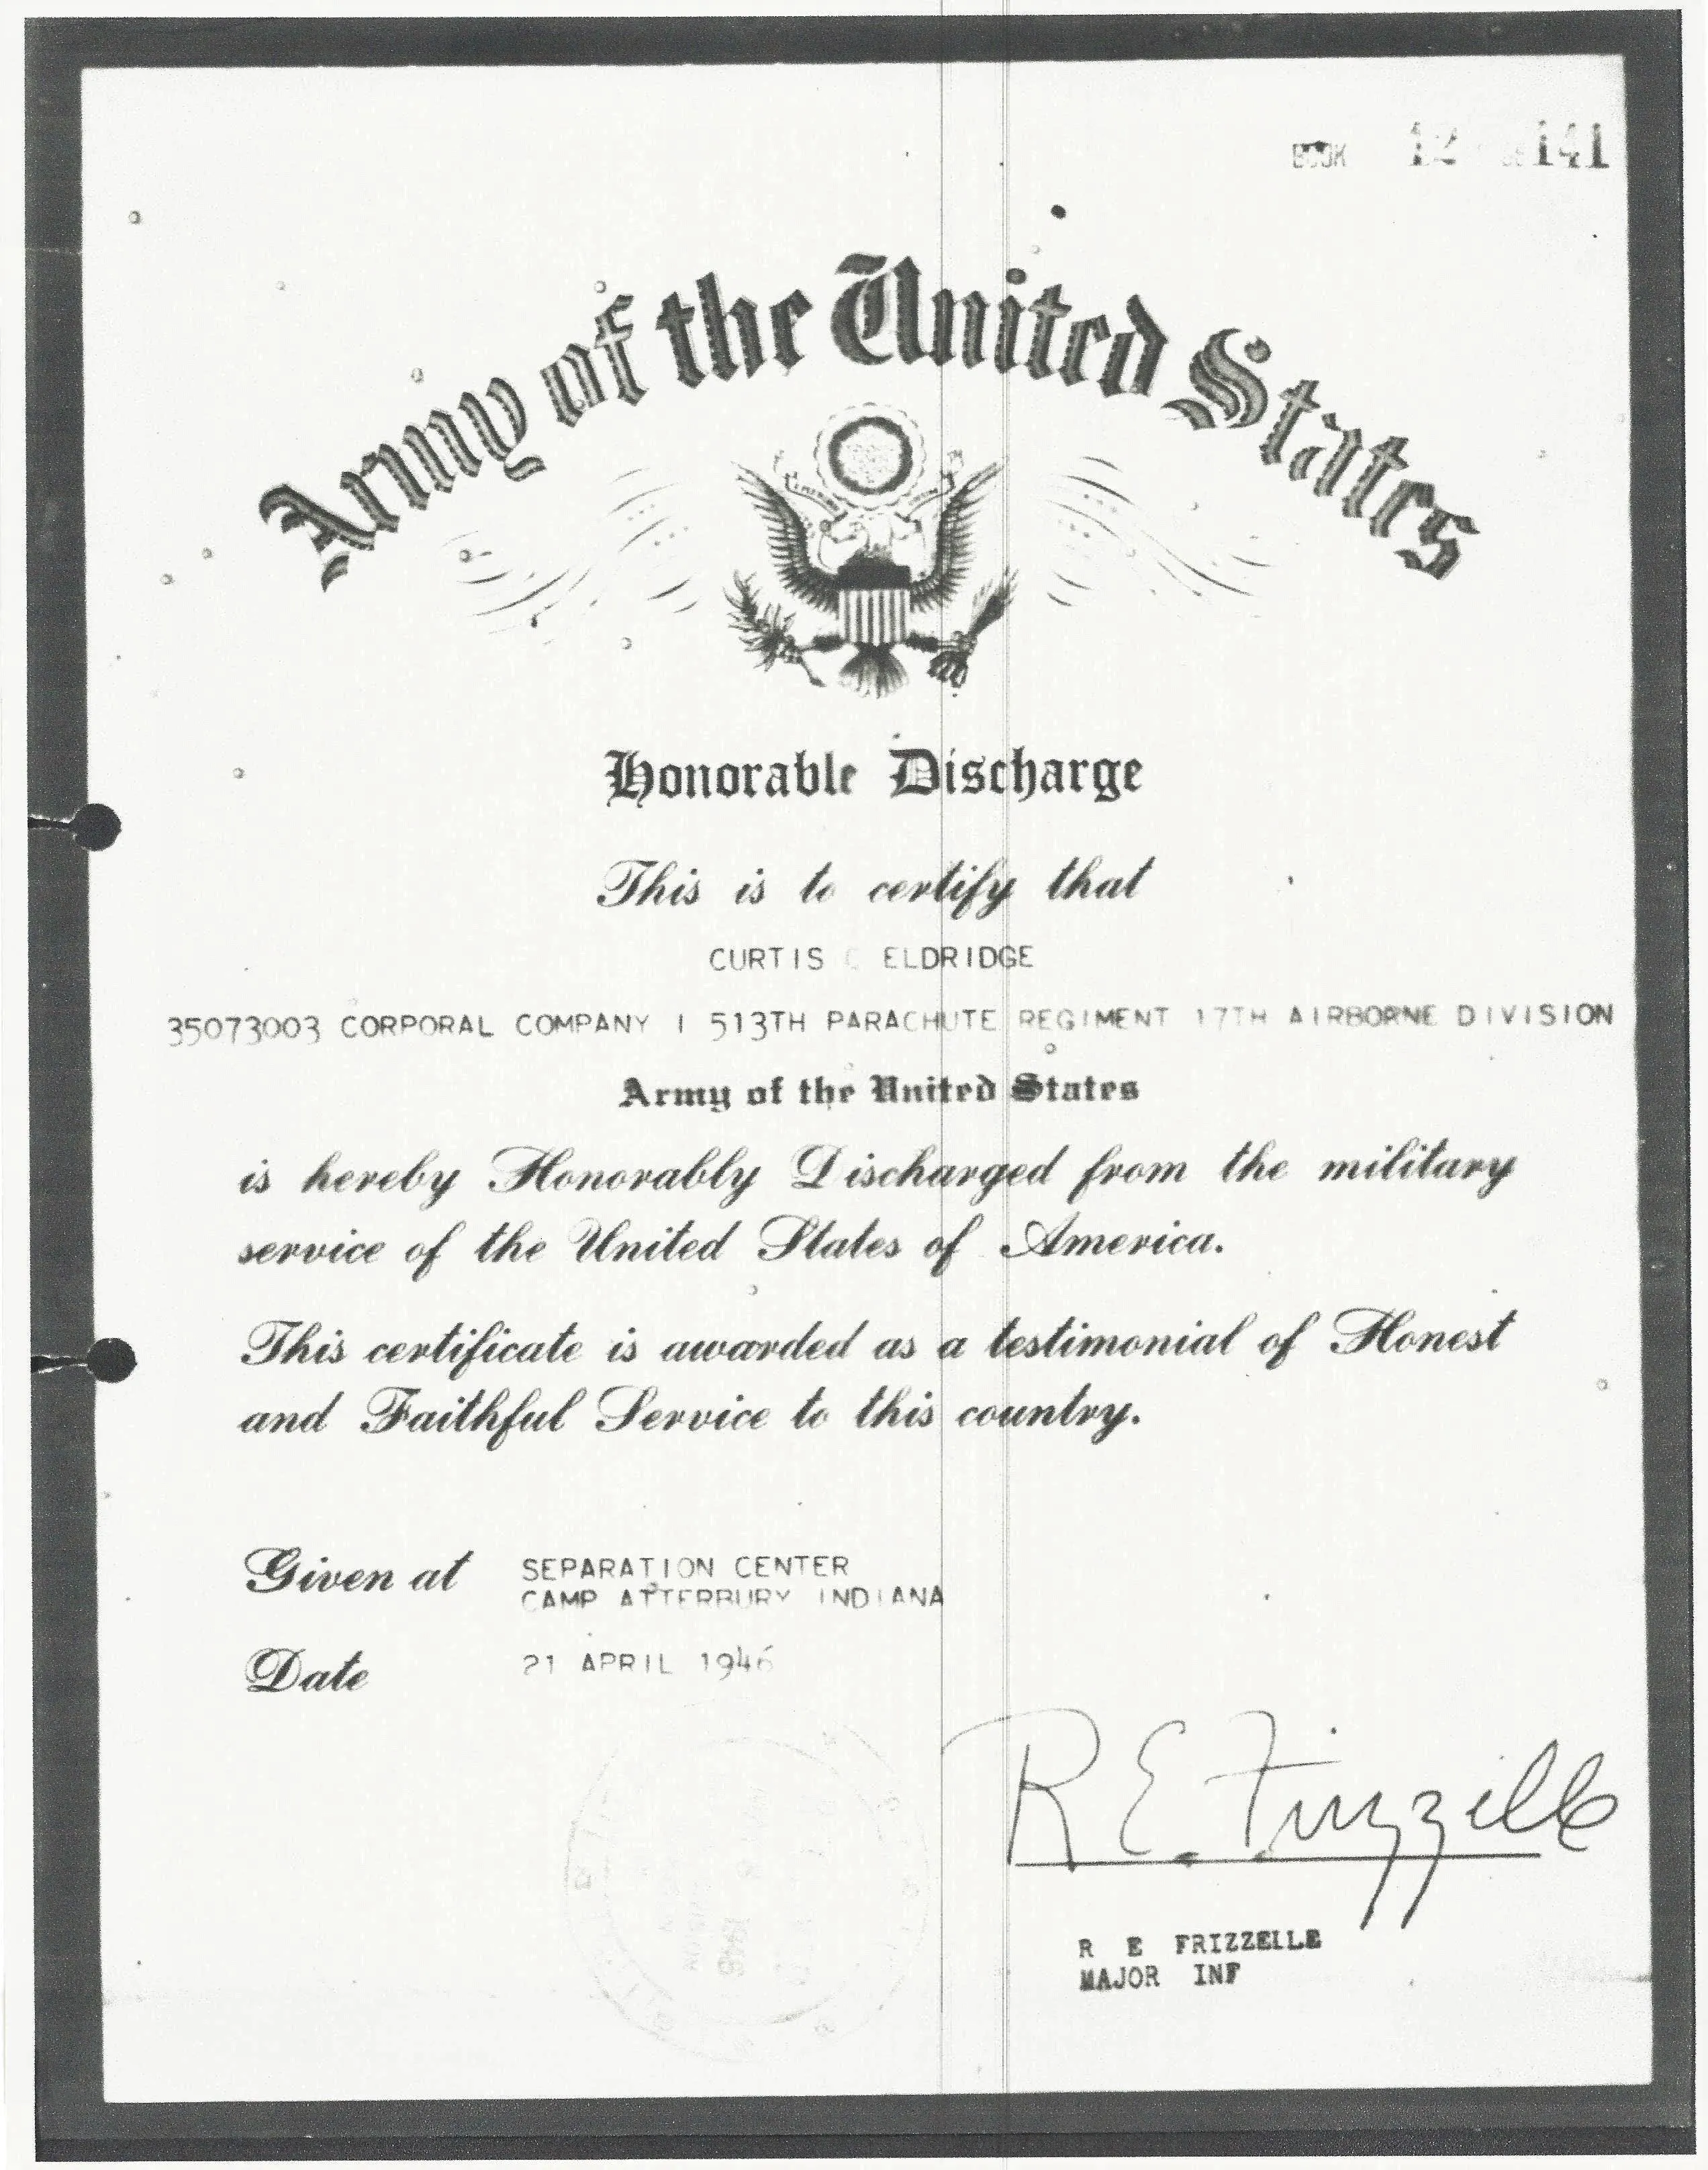 BOOK 12 141
Army of the United States
Honorable Discharge
This is to certify that
CURTIS C ELDRIDGE
35073003 CORPORAL COMPANY I 513TH PARACHUTE REGIMENT 17TH AIRBORNE DIVISION
Army of the United States
is hereby Honorably Discharged from the military
service of the United States of America.
This certificate is awarded as a testimonial of Honest
and Faithful Service to this country.
Given at SEPARATION CENTER
CAMP ATTERBURY INDIANA
Date 21 APRIL 1946
R. E. Frizzelle
R E FRIZZELLE
MAJOR INF